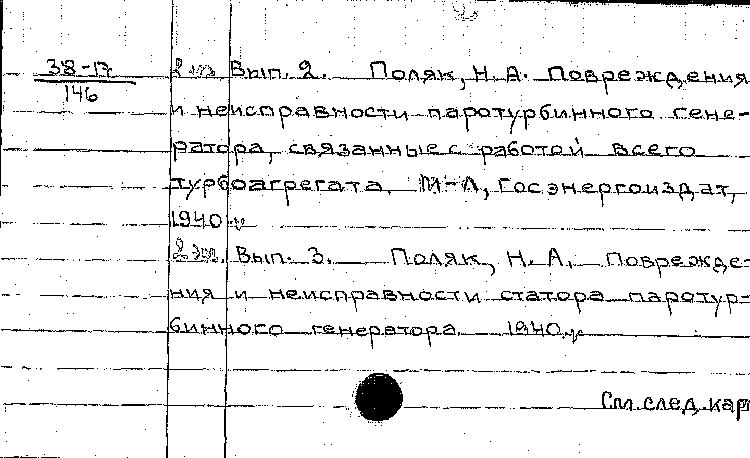 2
38-17
146
2 эк. Вып. 2. Поляк, Н. А. Повреждения
и неисправности паротурбинного гене-
ратора, связанные с работой всего
турбоагрегата. М-Л, Госэнергоиздат,
1940
2 эк. Вып. 3. Поляк, Н. А. Поврежде-
ния и неисправности статора паротур-
бинного генератора. 1940.
См. след. кар